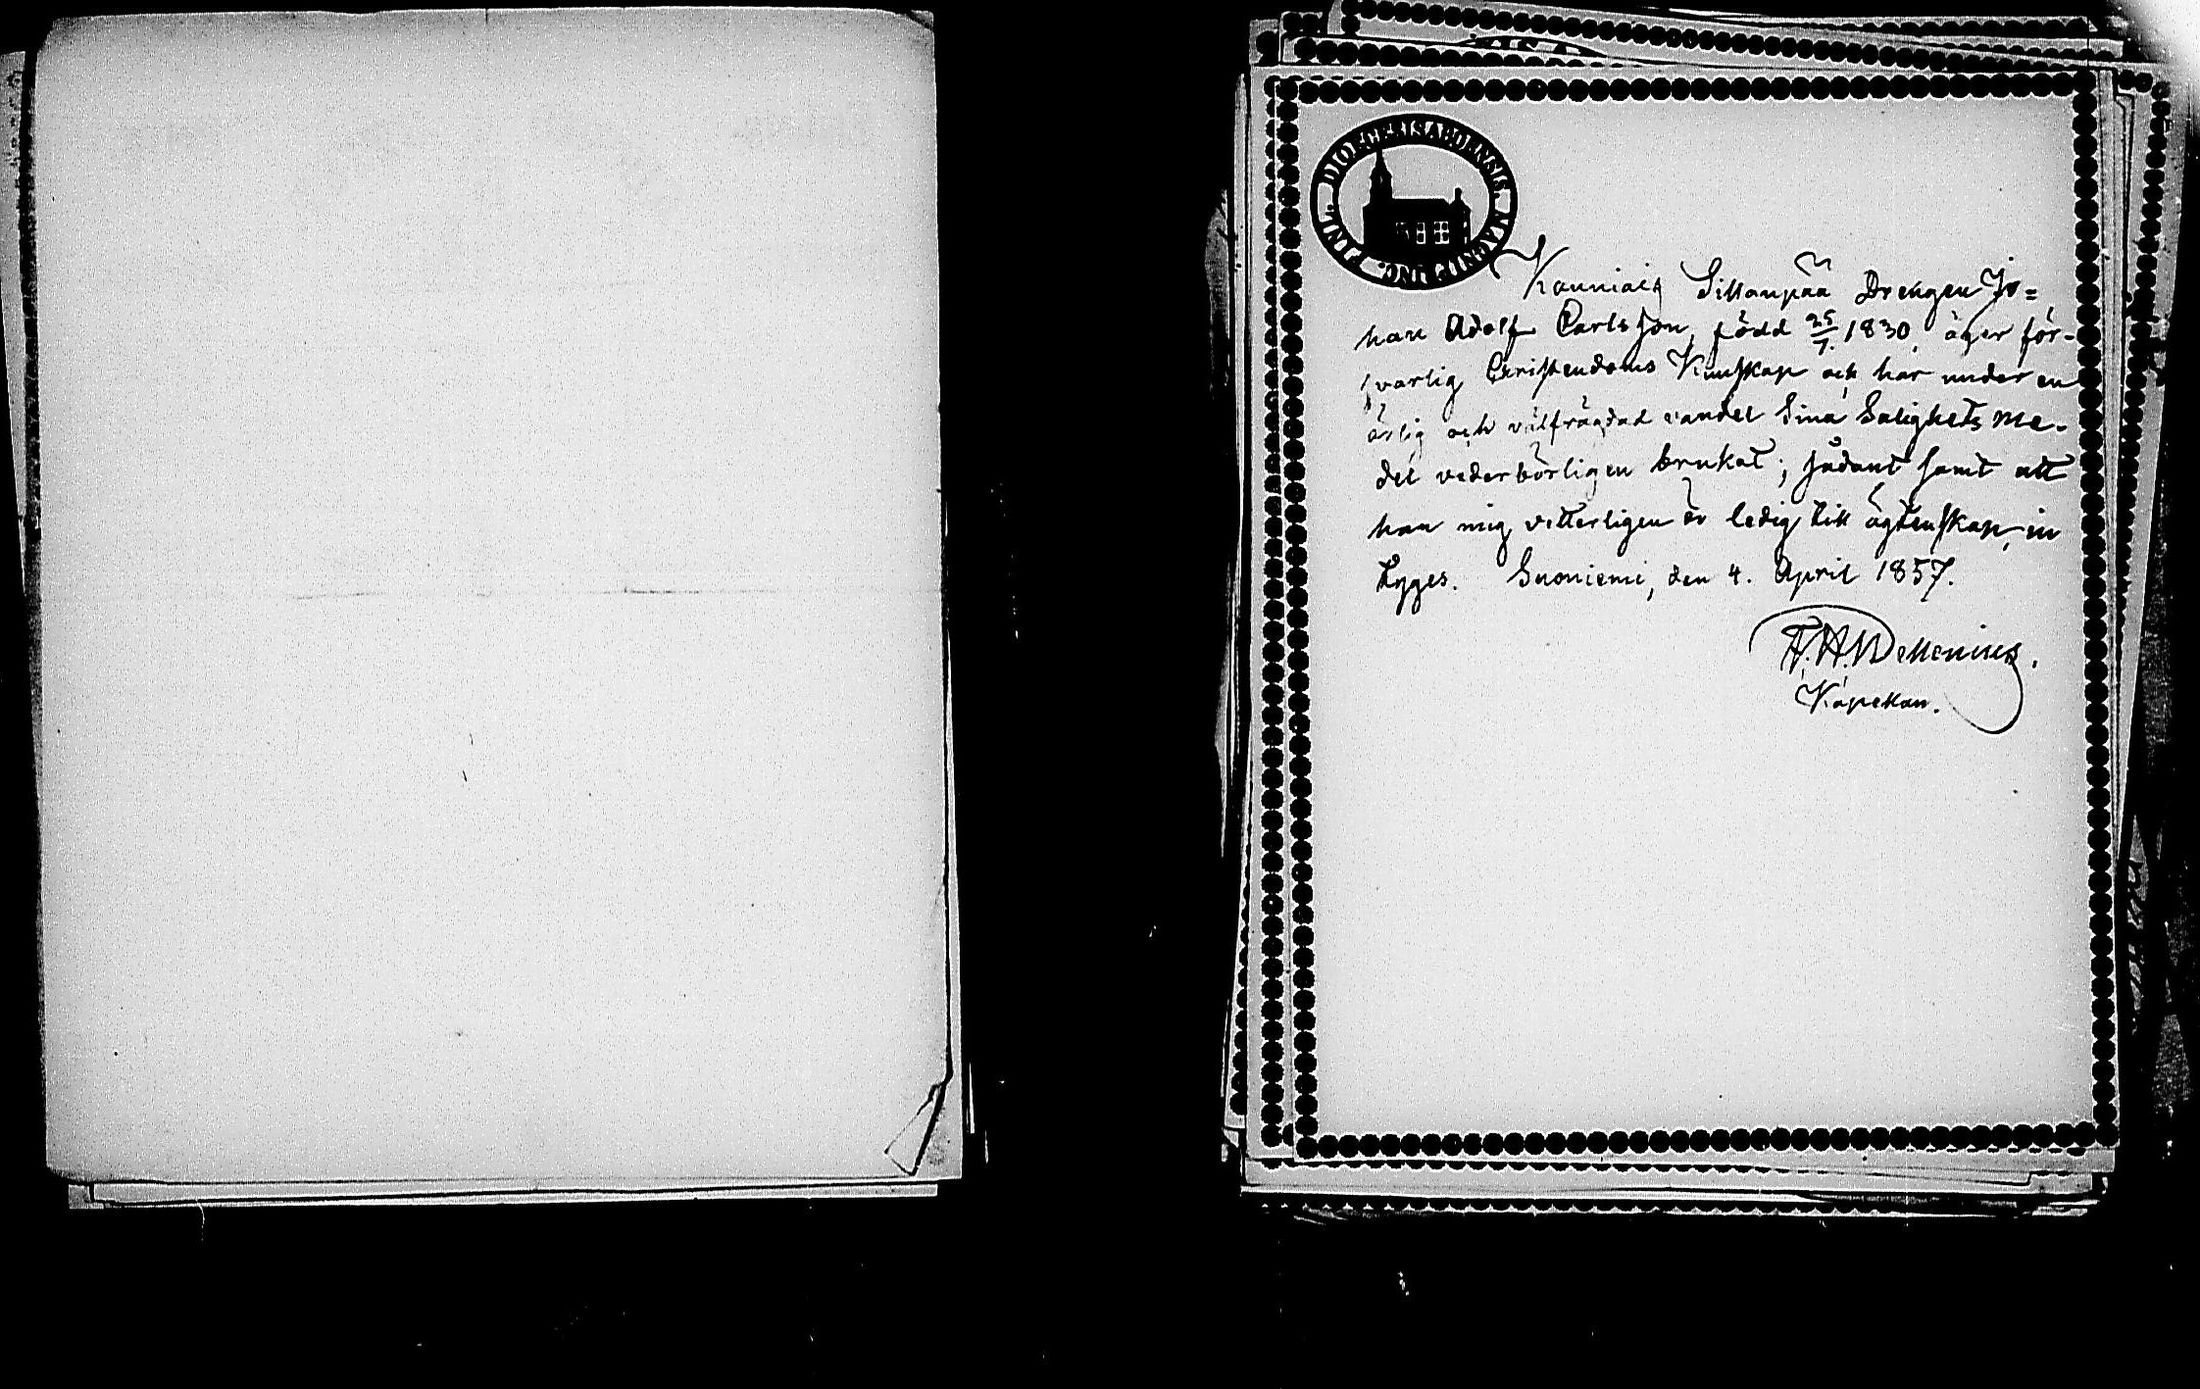 DIOECESIS ABOENSIS MAGNI PRINC. FINL.
Kauniais Sillanpää Drengen Jo=
han Adolf Carlsson, född 25/7 1830, äger för-
svarlig Christendoms Kunskap och har under en
ärlig och välfrägdad vandel Sina Salighets me-
del vederbörligen brukat; sådant samt att
han mig vetterligen är ledig till ägtenskap, in
tyges. Suoniemi, den 4. April 1857.
Wellenius.
Kapellan.